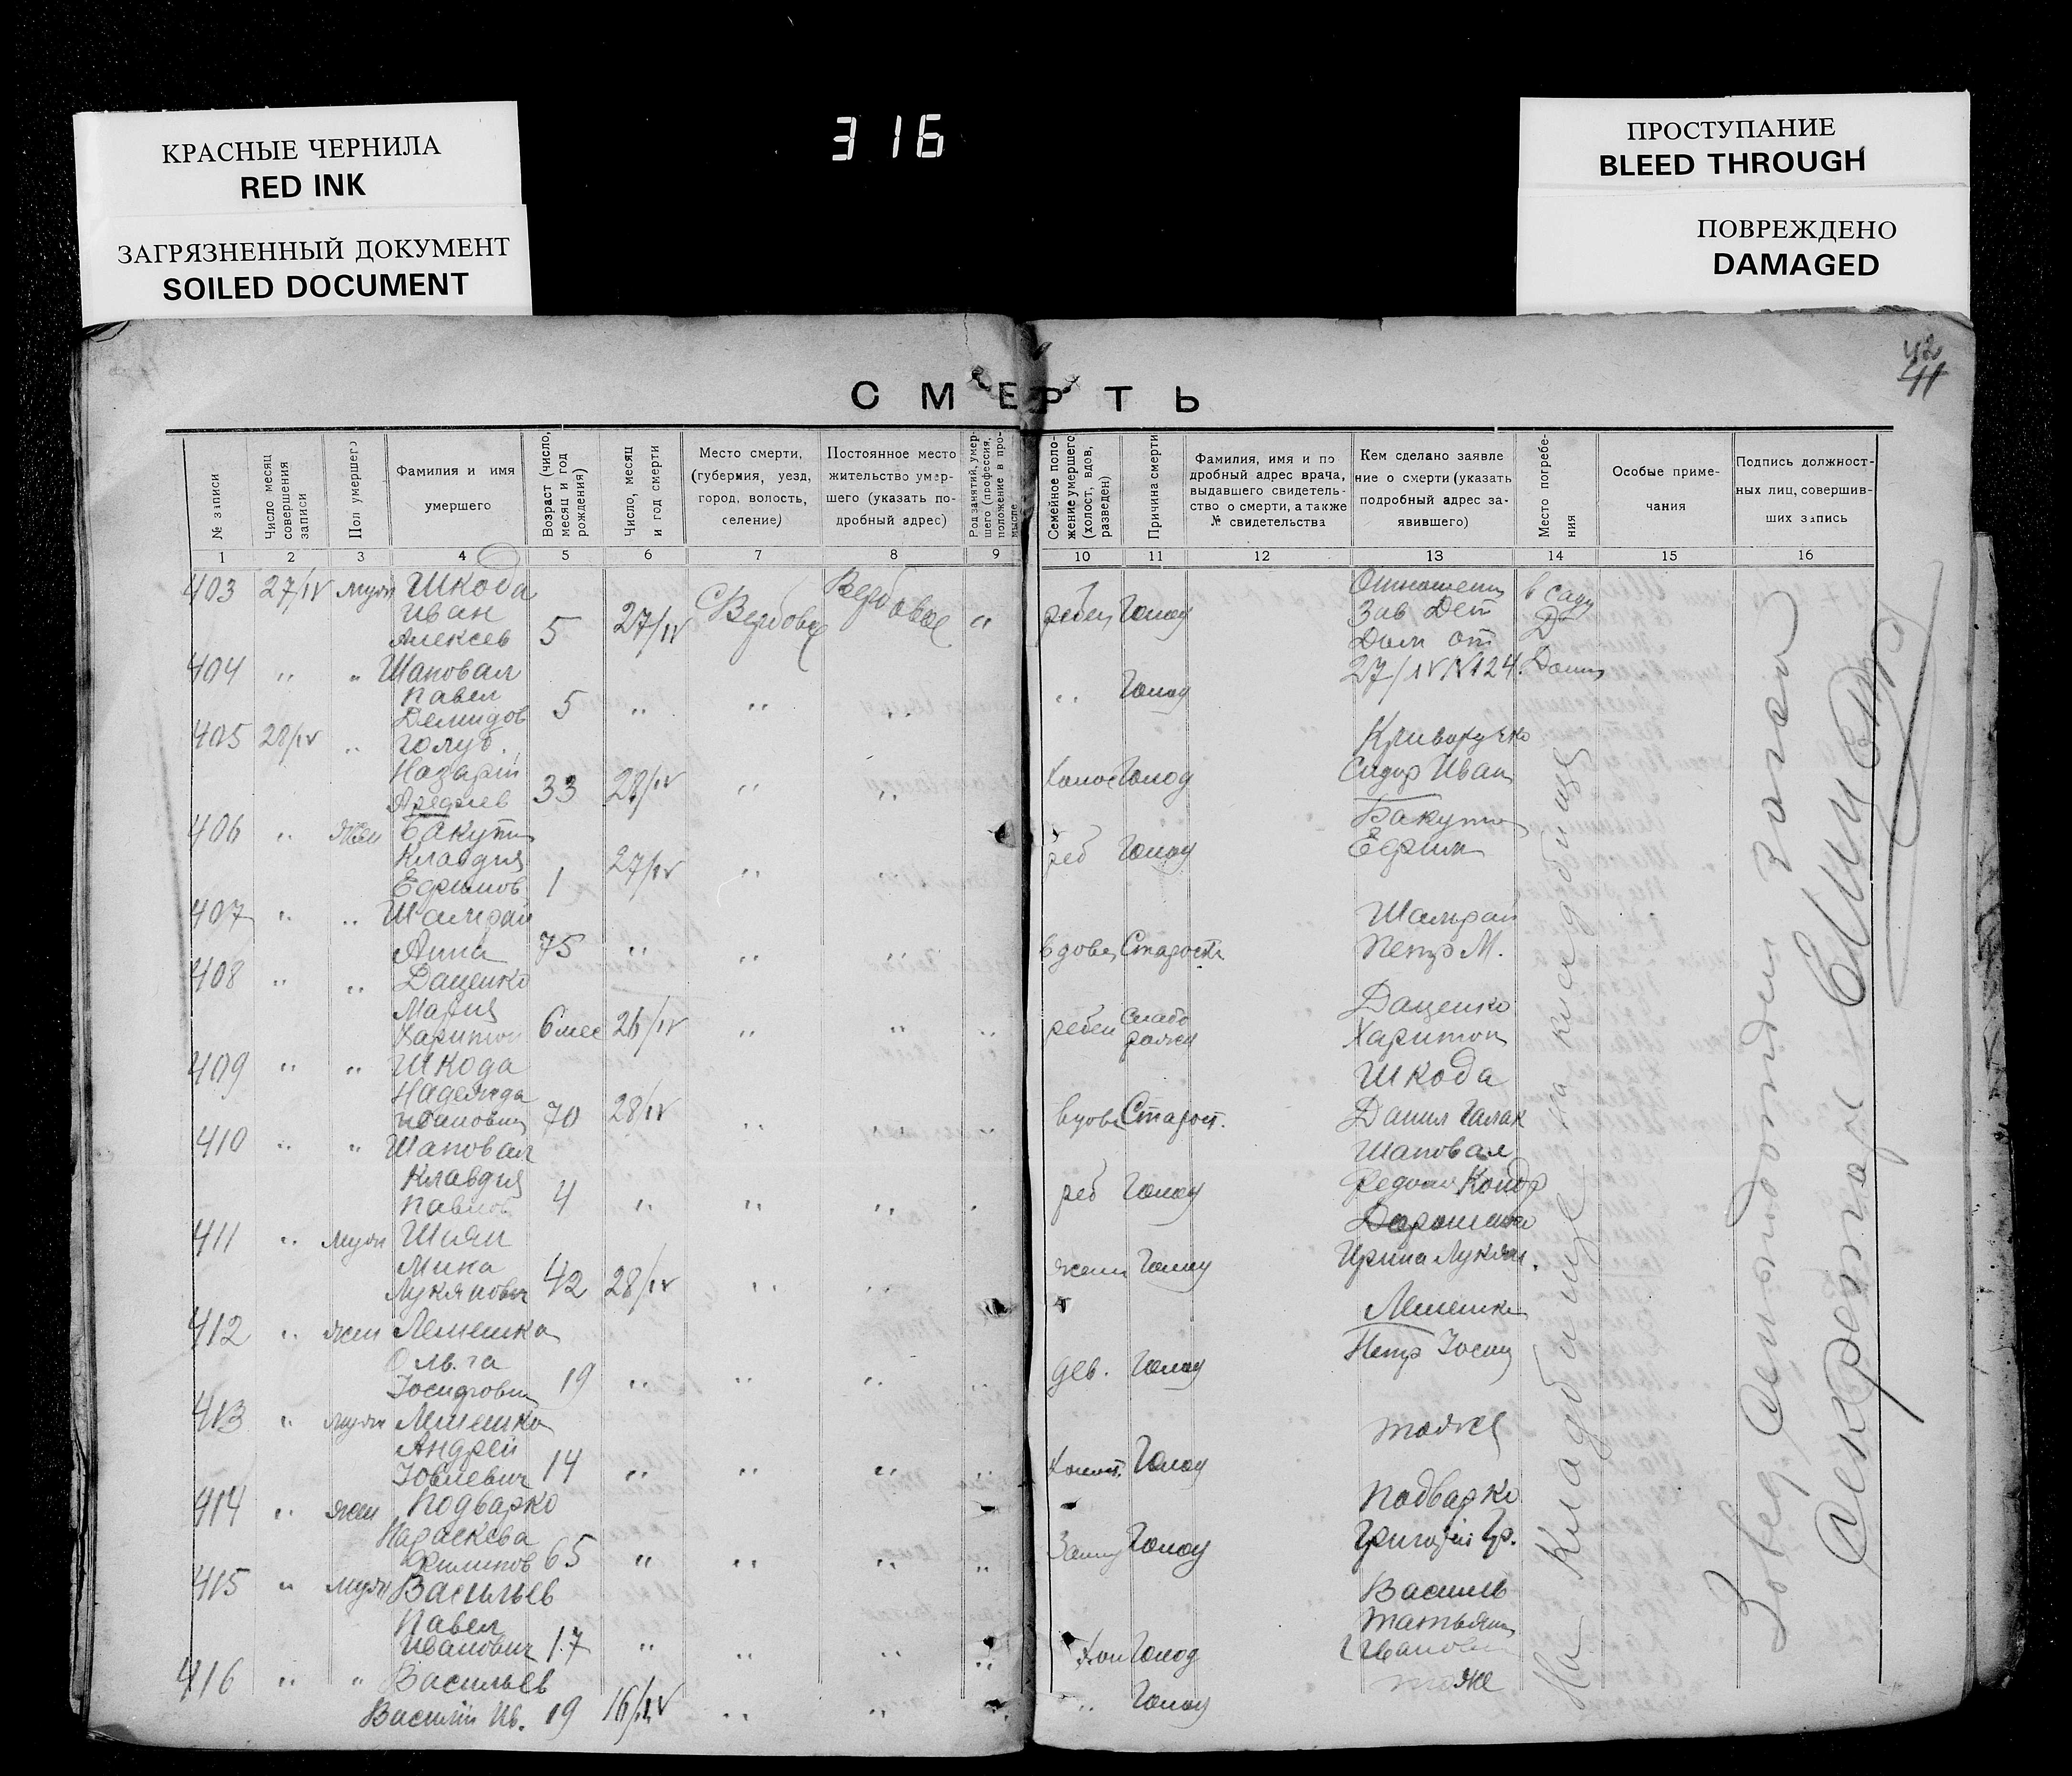 КРАСНЫЕ ЧЕРНИЛА
RED INK
ЗАГРЯЗНЕННЫЙ ДОКУМЕНТ
SOILED DOCUMENT
316
ПРОСТУПАНИЕ
BLEED THROUGH
ПОВРЕЖДЕНО
DAMAGED
42
СМЕРТЬ
№ записи
Число месяц совершения записи
Пол умершего
Фамилия и имя умершего
Возраст (число, месяц и год рождения)
Число, месяц и год смерти
Место смерти, (губермия, уезд, город, волость, селение)
Постоянное место жительство умершего (указать подробный адрес)
Род занятий, умершего (профессия, положение в промысле
Семейное положение умершего (холост, вдов, разведен)
Причина смерти
Фамилия, имя и по дробный адрес врача, выдавшего свидетельство о смерти, а также № свидетельства
Кем сделано заявление о смерти (указать подробный адрес заявившего)
Место погребения
Особые примечания
Подпись должностных лиц, совершивших запись
1 2 3 4 5 6 7 8 9 10 11 12 13 14 15 16
403 27/IV муж Шкода Иван Алексев 5 27/IV Вербовое " Голод Зав Дет Дом от 27/IV N 124. в саду Д
404 " " Шаповал Павел Демидов 5 " " " " Голод
405 28/IV " Голуб. Назарій 33 28/IV " " Холос Голод Сидор Иван
406 " жен Бакут Клавдия Ефимов 1 27/IV " " реб Голод Ефим
407 " " Шамрай Анна 75 " " " вдова Старость Шамрай Петр М.
408 " " Даценко Мария Харитон 6 мес 26/IV " " " ребен Слабо рожд Даценко Харитон
409 " " Шкода Надежда Ивановна 70 28/IV " " " вдова Старост. Шкода Данил
410 " " Шаповал Клавдия Павлов 4 " " " реб Голод Шаповал
411 " муж Шиян Мика Лукянович 42 28/IV " " Голод Ирина Лукян.
412 " жен Лемешка Ольга Іосифовн 19 " " " " дев. Голод Лемешка Петр Іосиф
413 " муж Лемешко Андрей 14 " " " " Холост. Голод тоже
414 " жен Подварко Параскева Филипов 65 " " " " Замуж Голод Подварко Григорій Гр.
415 " муж Васильев Павел Иванович 17 " " " " Хол Голод Васильев Татьяна
416 " " Васильев Василій Ив. 19 16/IV " " " Голод тоже
На кладбище
на кладбище
Завед
Секретарь